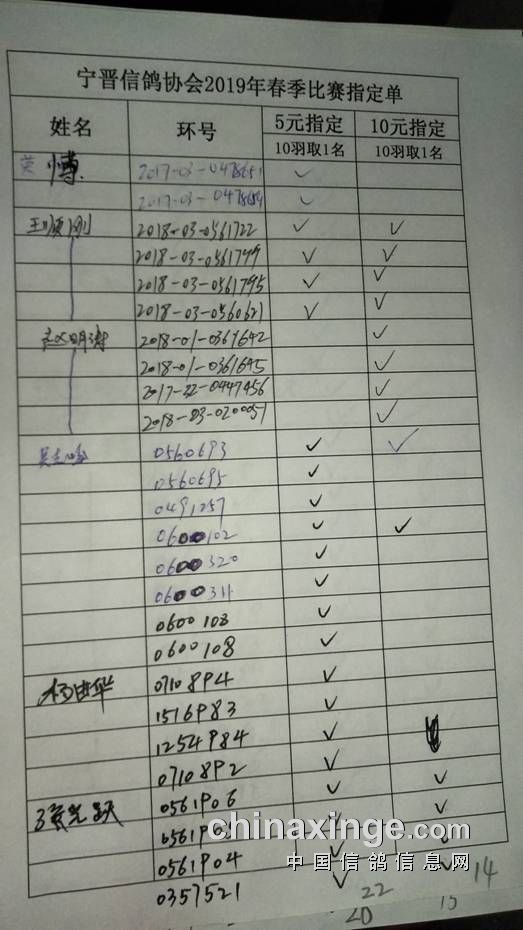 宁晋信鸽协会2019年春季比赛指定单
姓名 环号 5元指定 10元指定
10羽取1名 10羽取1名
博 2017-03-0478651 ✓
2017-03-04786 ✓
王顺刚 2018-03-0561722 ✓ ✓
2018-03-0561799 ✓ ✓
2018-03-0561795 ✓ ✓
2018-03-0560621 ✓ ✓
赵明涛 2018-01-0361642 ✓
2018-01-0361645 ✓
2017-22-0447456 ✓
2018-03-0200051 ✓
0560693 ✓ ✓
0560695 ✓
0491257 ✓
0600102 ✓ ✓
0600320 ✓
0600311 ✓
0600103 ✓
0600108 ✓
杨进华 0710894 ✓
1516983 ✓
1254984 ✓
0710892 ✓
0561906 ✓ ✓
05619 ✓ ✓
0561904 ✓ ✓
0357521 ✓
chinaxinge.com
中国信鸽信息网
22 14
20 13